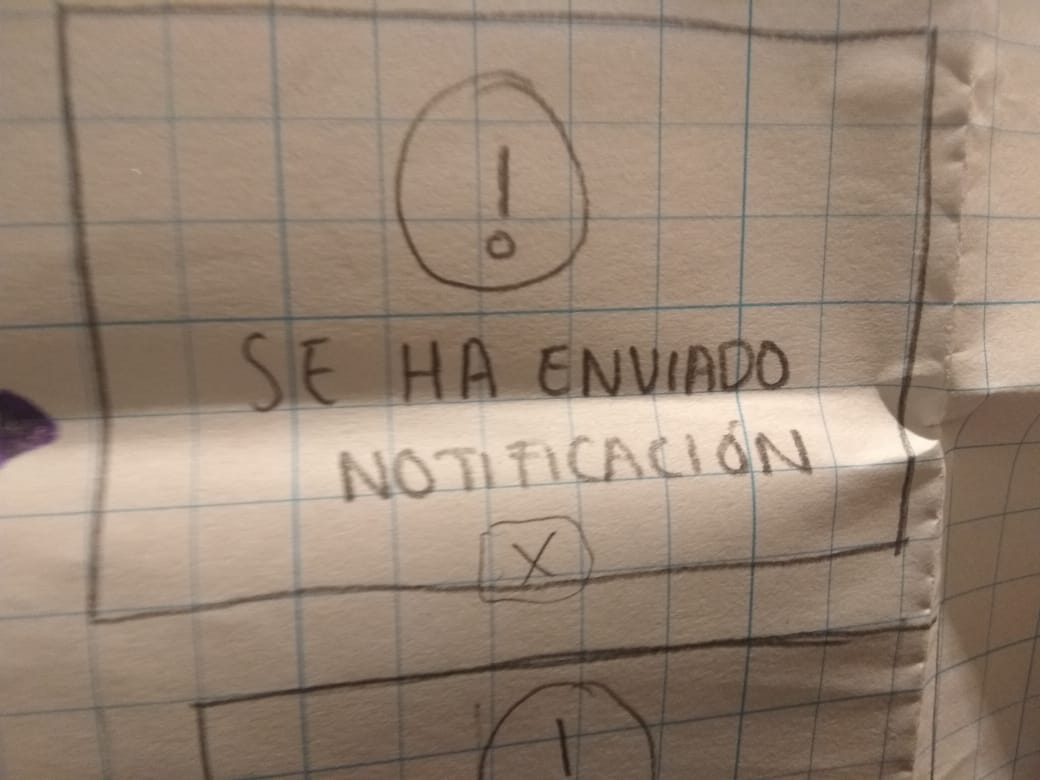 !
SE HA ENVIADO
NOTIFICACIÓN
X
!